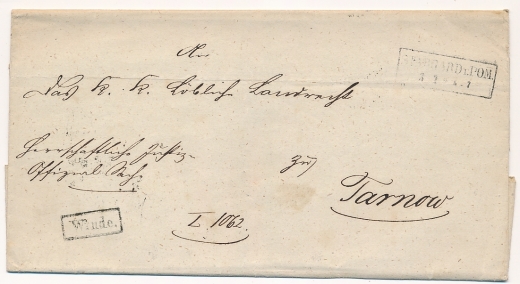 An
Das K. K. Löbliche Landrecht
STARGARD i. POM.
Herrschaftliche Justiz-
Offizial Sache
zu
Tarnow
L. 1062.
Winde.